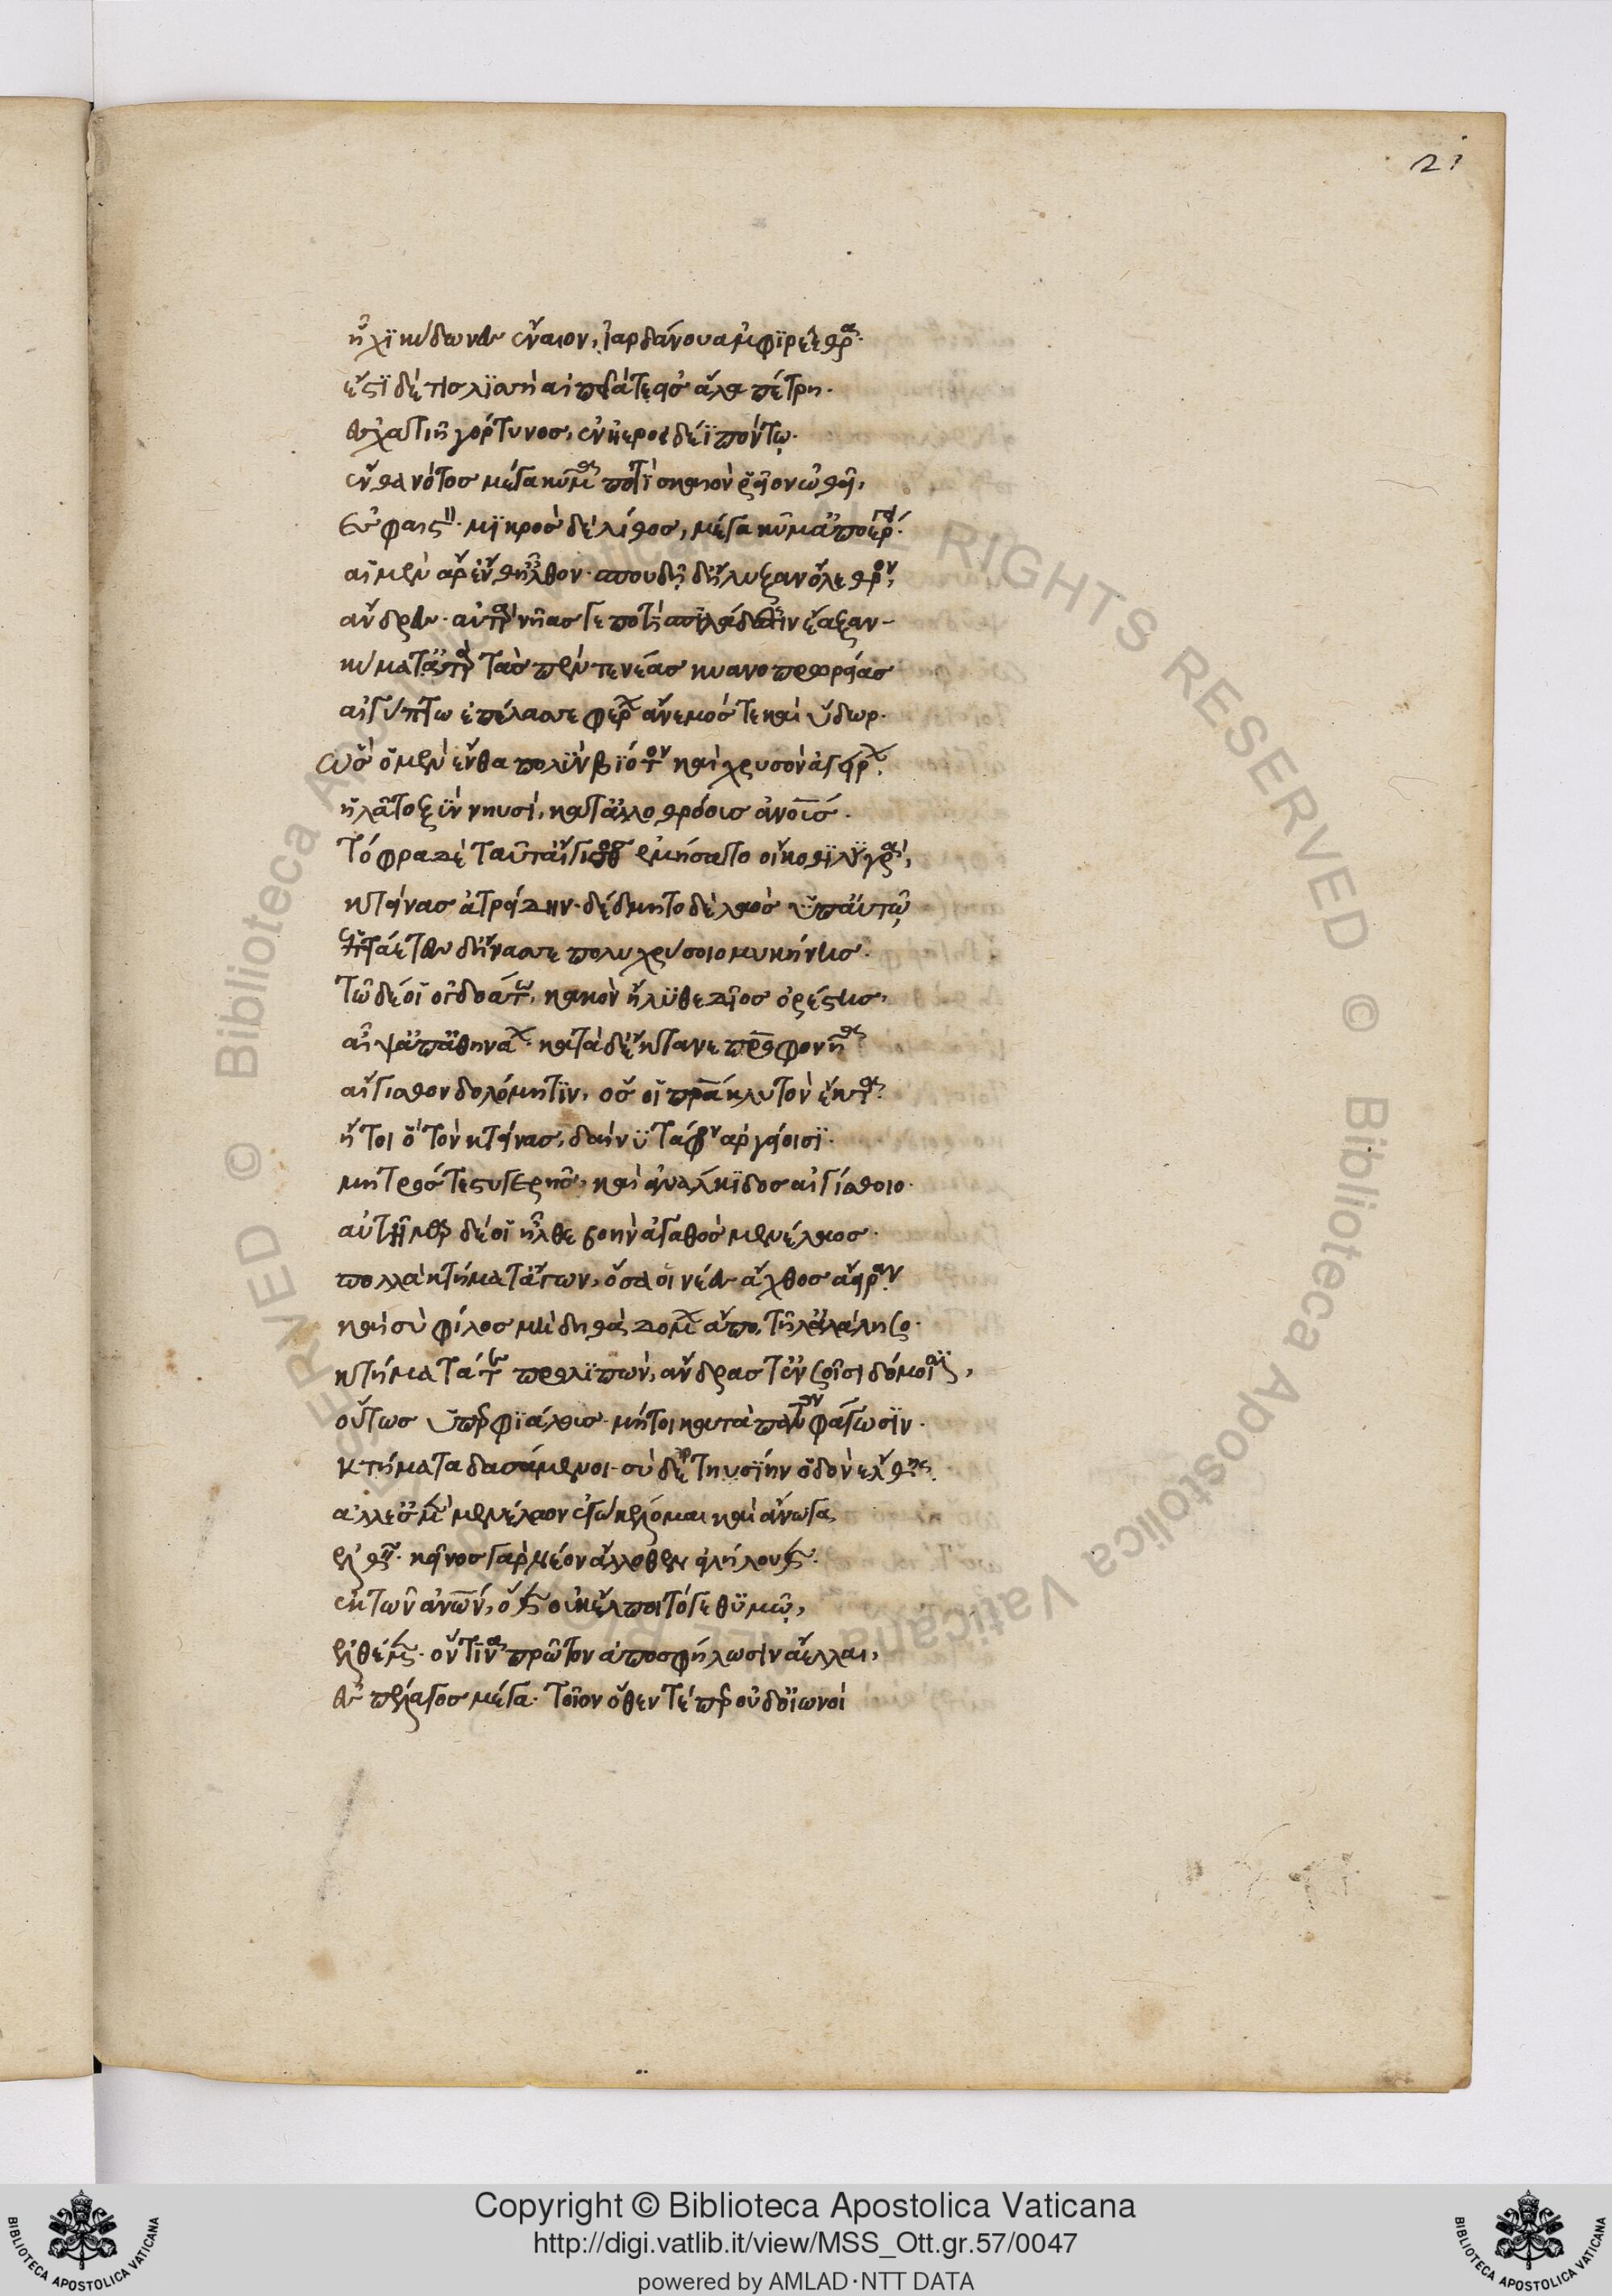 21
ἧχι κύδωνες ἔναιον, ἰαρδάνου ἀμφὶ ῥέεθρα.
ἔστι δέ τις λισσὴ αἰπεῖά τε εἰς ἅλα πέτρη.
ἐσχατιῇ γόρτυνος, ἐν ἠεροειδέϊ πόντῳ.
ἔνθα νότος μέγα κῦμα ποτὶ σκαιὸν ῥίον ὠθεῖ,
ἐς φαιστ. μικρὸς δὲ λίθος, μέγα κῦμ' ἀποέργ.
αἱ μὲν ἄρ' ἔνθ' ἦλθον. σπουδῇ δ' ἤλυξαν ὄλεθρον,
ἄνδρες. ἀτὰρ νῆάς γε ποτὶ σπιλάδεσσιν ἔαξαν
κύματ'. ἀτὰρ τὰς πέντε νέας κυανοπρωρείας
αἰγύπτῳ ἐπέλασσε φέρων ἄνεμός τε καὶ ὕδωρ.
ὣς ὃ μὲν ἔνθα πολὺν βίοτον καὶ χρυσὸν ἀγείρων,
ἠλᾶτο ξὺν νηυσὶ, κατ' ἀλλοθρόους ἀνους.
τόφρα δὲ ταῦτ' αἴγισθος ἐμήσατο οἴκοθι λυγρά,
κτείνας ἀτρείδην. δέδμητο δὲ λαὸς ὑπ' αὐτῷ
ἑπτάετες δ' ἤνασσε πολυχρύσοιο μυκήνης.
τῷ δέ οἱ ὀγδοάτῳ, κακὸν ἤλυθε δῖος ὀρέστης,
ἂψ ἀπ' ἀθηνάων. κατὰ δ' ἔκτανε πατροφονῆα
αἴγισθον δολόμητιν, ὅς οἱ πρα κλυτὸν ἔκτα.
ἤτοι ὃ τὸν κτείνας, δαίνυ τάφον ἀργείοισι.
μητρός τε στυγερῆς, καὶ ἀνάλκιδος αἰγίσθοιο.
αὐτῆμαρ δέ οἱ ἦλθε βοὴν ἀγαθὸς μενέλαος.
πολλὰ κτήματ' ἄγων, ὅσα οἱ νέες ἄχθος ἄειραν.
καὶ σὺ φίλος μὴ δηθὰ δόμων ἄπο, τῆλ' ἀλάλησο.
κτήματά τε προλιπὼν, ἄνδρας τ' ἐν σοῖσι δόμοισιν,
οὕτως ὑπερφιάλους. μήτοι κατὰ πάντα φάγωσιν.
κτήματα δασάμενοι. σὺ δὲ τηυσίην ὁδὸν ἔλθῃς.
ἀλλ' ἐς μὲν μενέλαον ἐγὼ κέλομαι καὶ ἄνωγα
ἐλθεῖν. κεῖνος γὰρ νέον ἄλλοθεν εἰλήλουθεν.
ἐκ τῶν ἀνων, ὅθεν οὐκ ἔλποιτό γε θυμῷ,
ἐλθέμεν. ὅντινα πρῶτον ἀποσφήλωσιν ἄελλαι,
ἐς πέλαγος μέγα. τοῖον ὅθεν τέ περ οὐδ' οἰωνοὶ
Copyright © Biblioteca Apostolica Vaticana
http://digi.vatlib.it/view/MSS_Ott.gr.57/0047
powered by AMLAD·NTT DATA